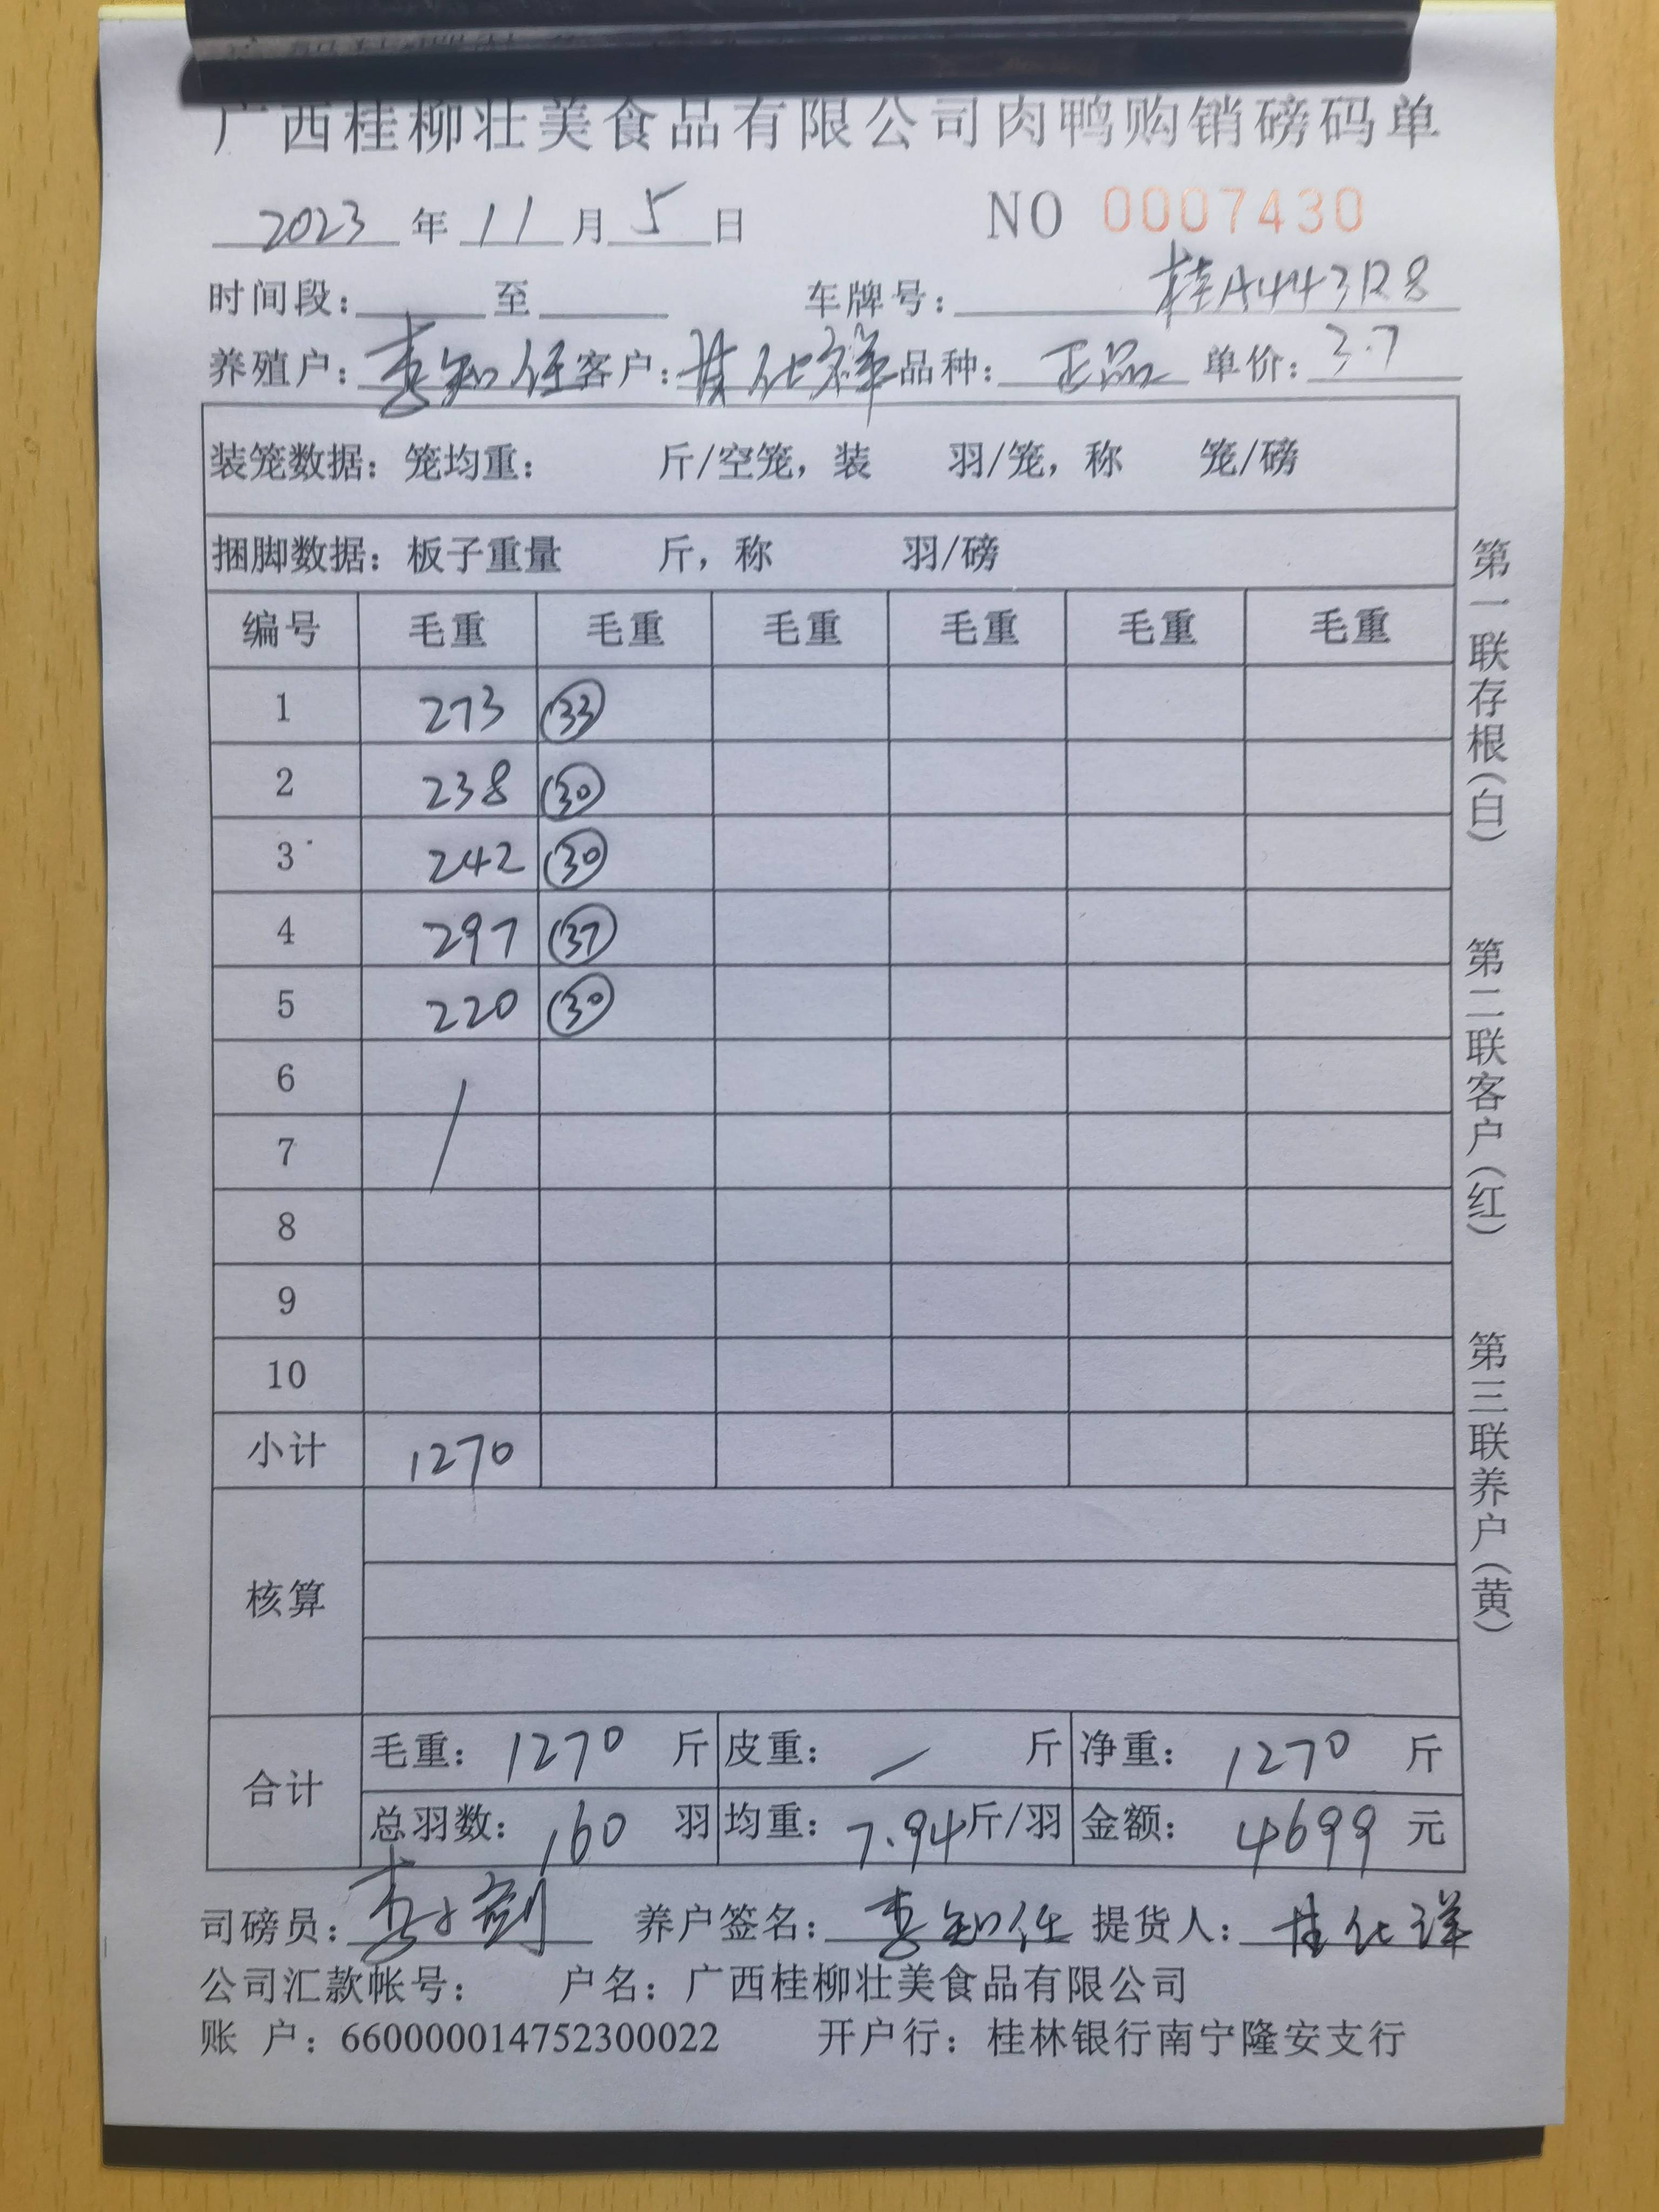 广西桂柳壮美食品有限公司肉鸭购销磅码单
2023 年 11 月 5 日 NO 0007430
时间段： 至 车牌号： 桂A443R8
养殖户：李知任 客户： 化祥 品种：正品 单价：3.7
装笼数据：笼均重： 斤/空笼，装 羽/笼，称 笼/磅
捆脚数据：板子重量 斤，称 羽/磅
编号 毛重 毛重 毛重 毛重 毛重 毛重
1 273 33
2 238 30
3 242 30
4 297 37
5 220 30
6 /
7
8
9
10
小计 1270
核算
合计
毛重：1270 斤 皮重：/ 斤 净重：1270 斤
总羽数：160 羽 均重：7.94 斤/羽 金额：4699 元
司磅员：李 养户签名：李知任 提货人： 化祥
公司汇款帐号： 户名：广西桂柳壮美食品有限公司
账 户：660000014752300022 开户行：桂林银行南宁隆安支行
第一联存根(白) 第二联客户(红) 第三联养户(黄)